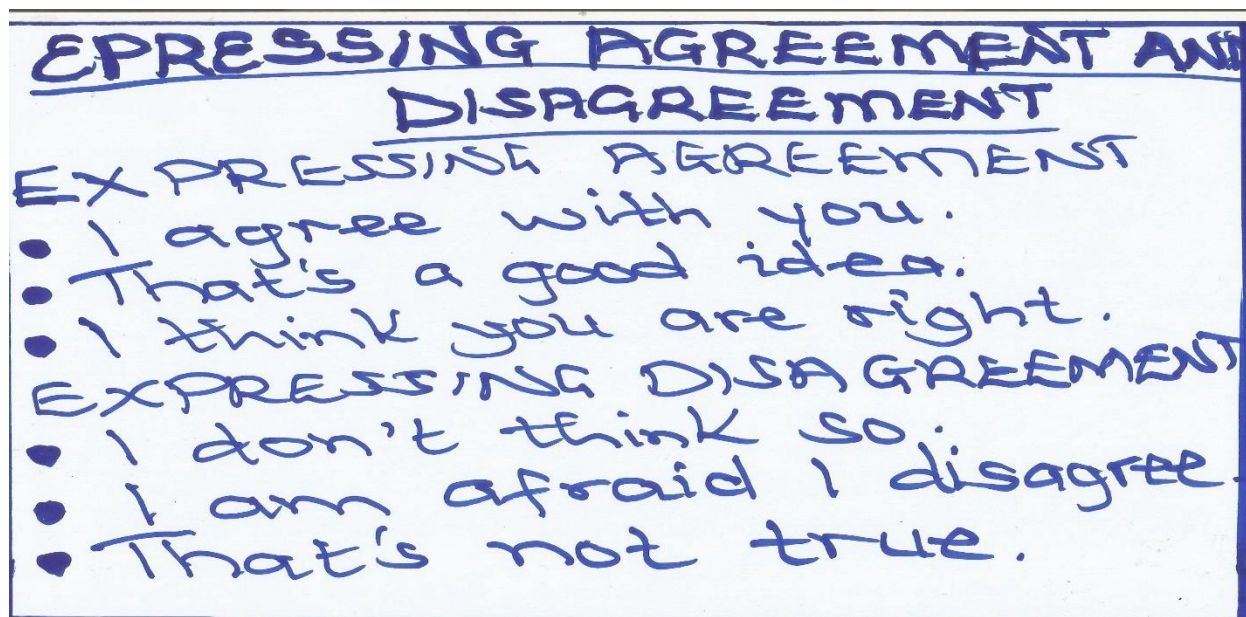 EPRESSING AGREEMENT AND
DISAGREEMENT
EXPRESSING AGREEMENT
• I agree with you.
• That's a good idea.
• I think you are right.
EXPRESSING DISAGREEMENT
• I don't think so.
• I am afraid I disagree.
• That's not true.